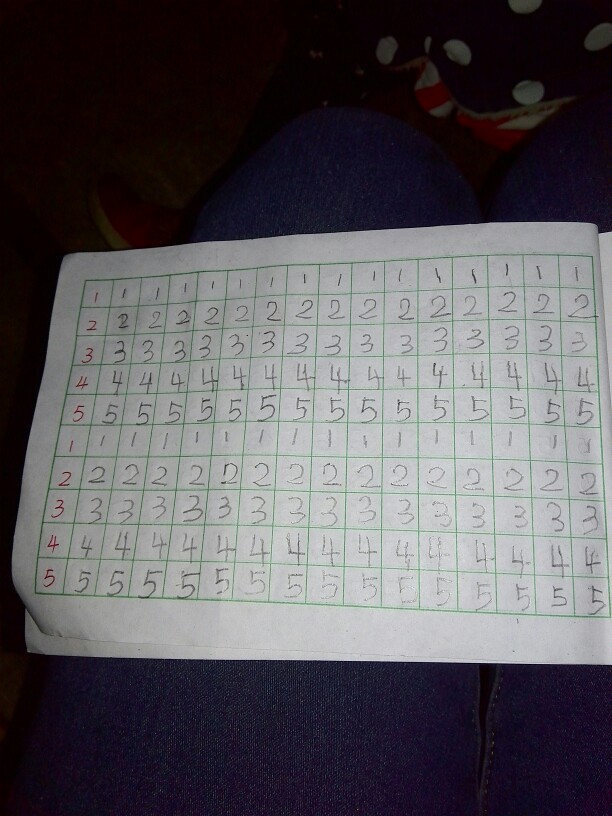 1 1 1 1 1 1 1 1 1 1 1 1 1 1 1 1
2 2 2 2 2 2 2 2 2 2 2 2 2 2 2 2
3 3 3 3 3 3 3 3 3 3 3 3 3 3 3 3
4 4 4 4 4 4 4 4 4 4 4 4 4 4 4 4
5 5 5 5 5 5 5 5 5 5 5 5 5 5 5 5
1 1 1 1 1 1 1 1 1 1 1 1 1 1 1 1
2 2 2 2 2 2 2 2 2 2 2 2 2 2 2 2
3 3 3 3 3 3 3 3 3 3 3 3 3 3 3 3
4 4 4 4 4 4 4 4 4 4 4 4 4 4 4 4
5 5 5 5 5 5 5 5 5 5 5 5 5 5 5 5